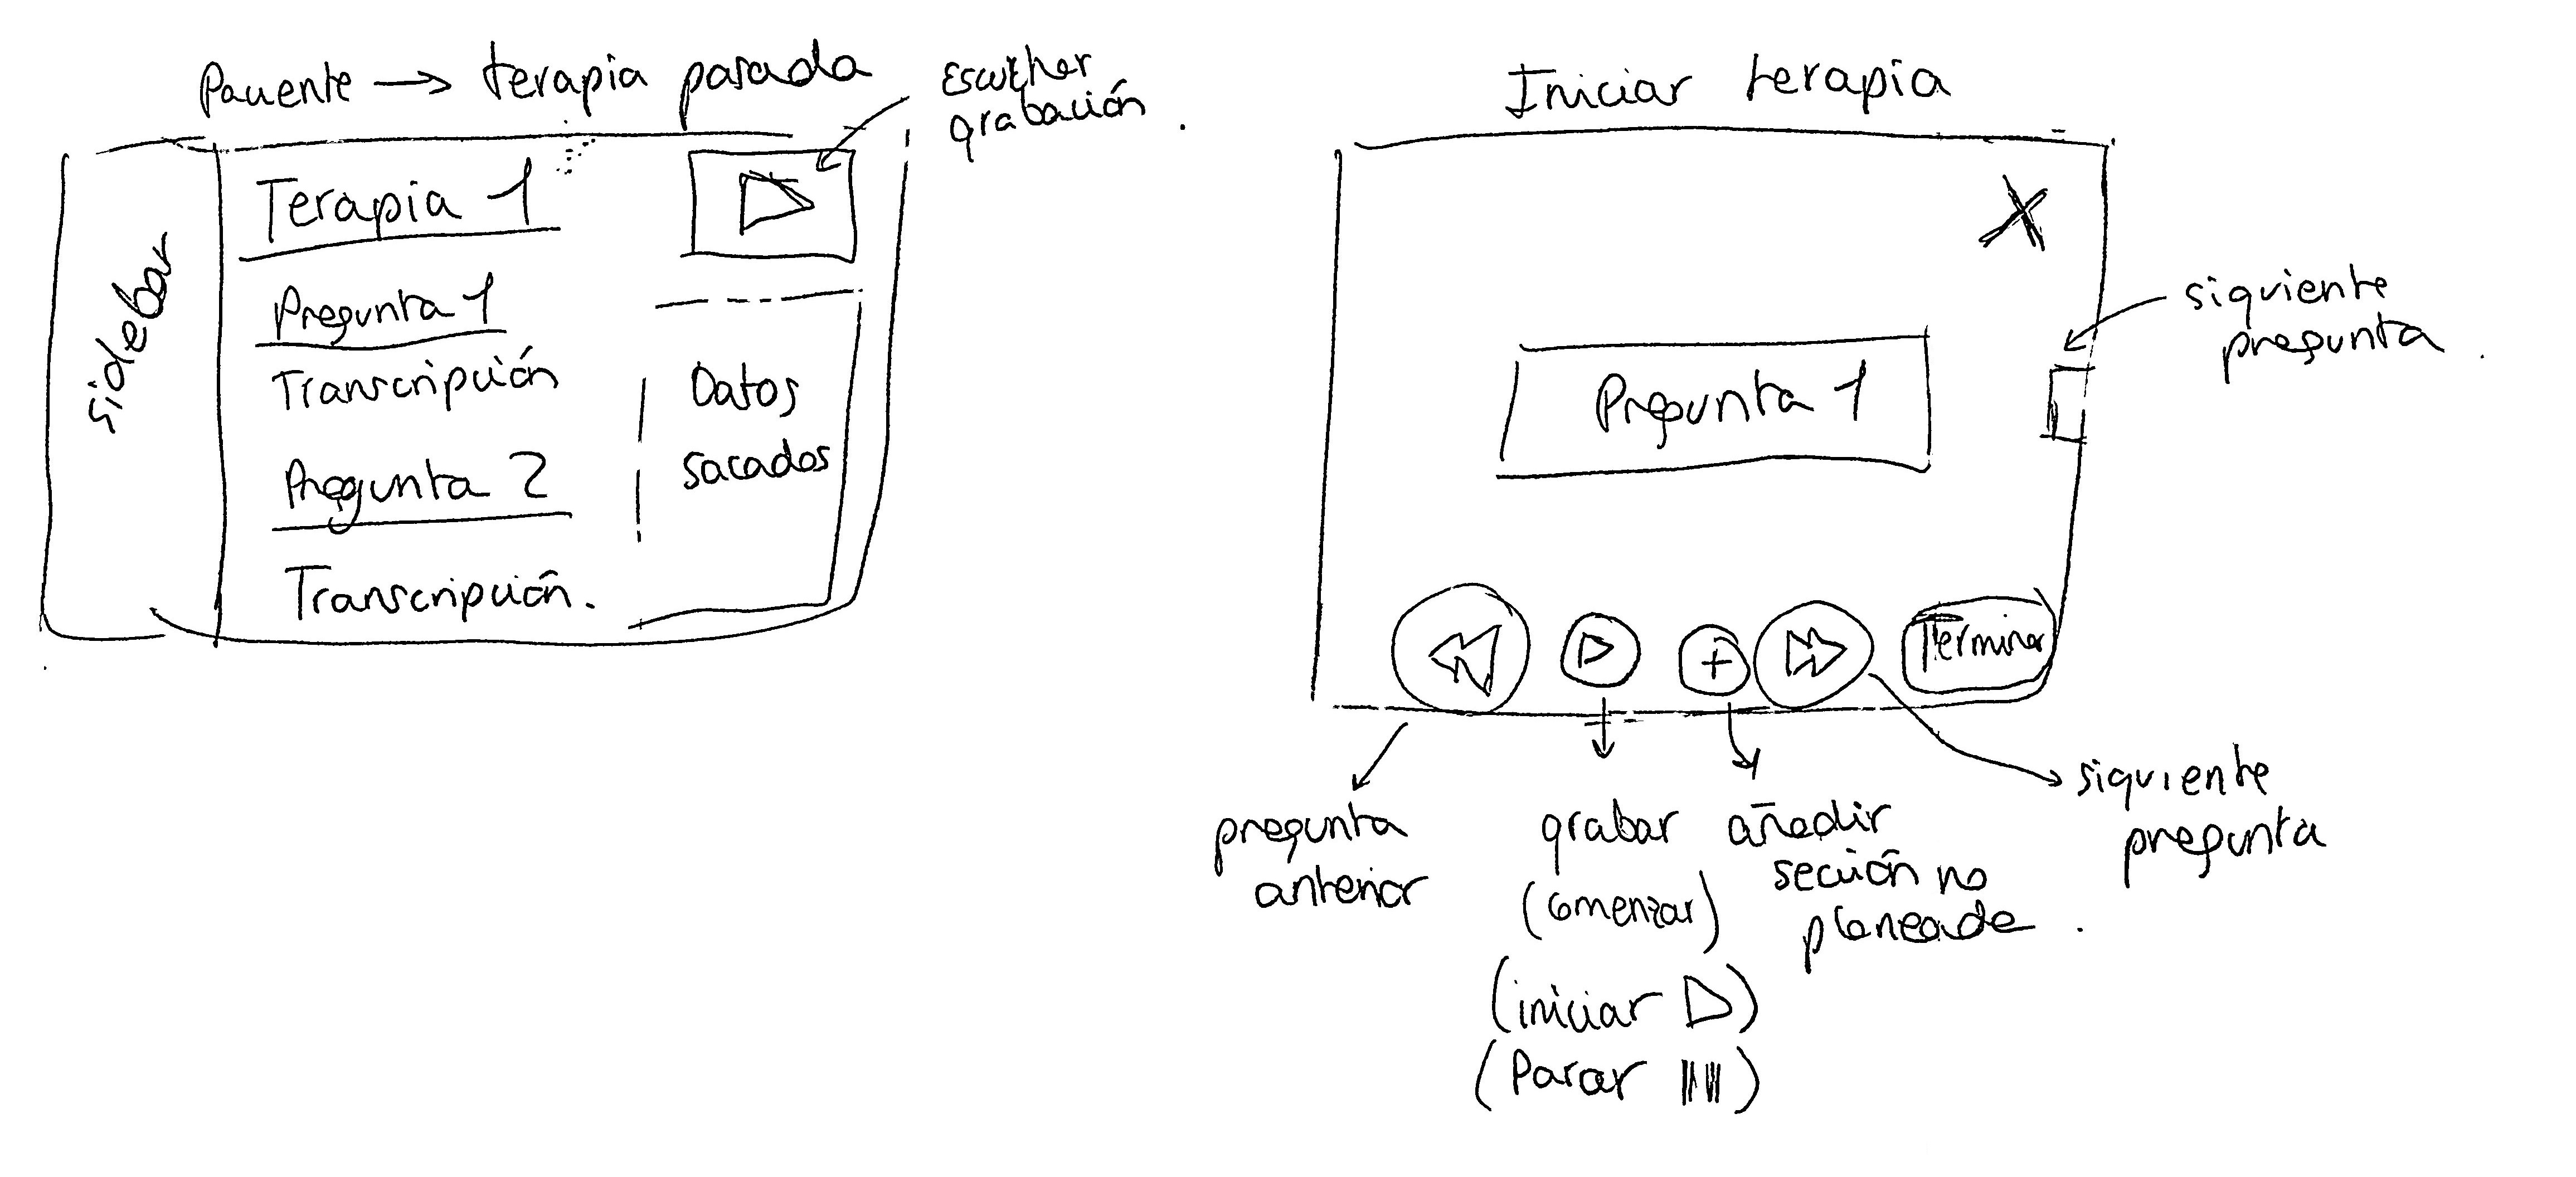 Paciente → terapia pasada
Escuchar
grabación.
sidebar
Terapia 1
Pregunta 1
Transcripción
Pregunta 2
Transcripción.
Datos
sacados
Iniciar terapia
X
siguiente
pregunta.
Pregunta 1
+
Terminar
pregunta
anterior
grabar
(comenzar)
(iniciar ▷)
(Parar ||||)
añadir
sección no
planeada.
siguiente
pregunta